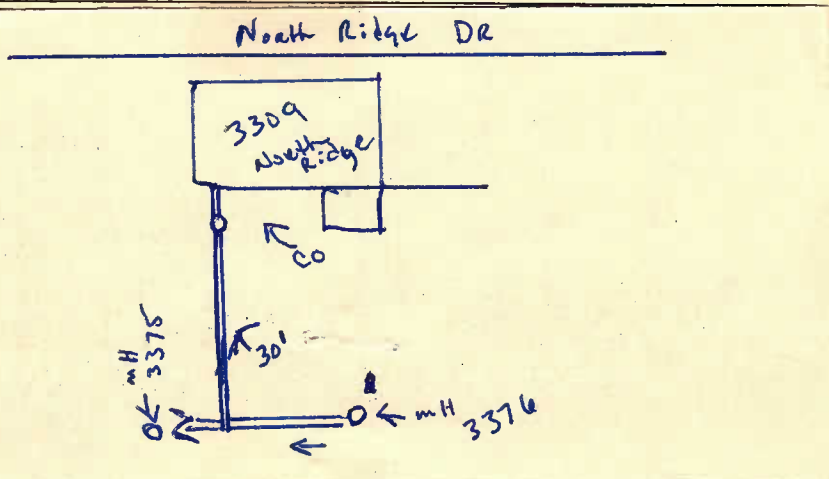 North Ridge DR
3309
North
Ridge
CO
30'
mH
3375
mH 3376